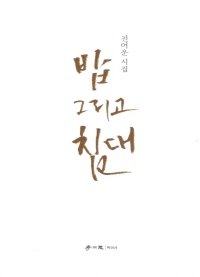 밤
그리고
침대
진여운 시집